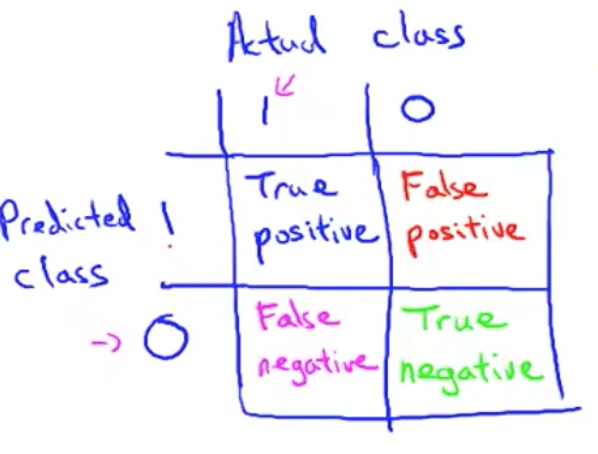 Actual class
1 0
Predicted class 1
True positive
False positive
0
False negative
True negative